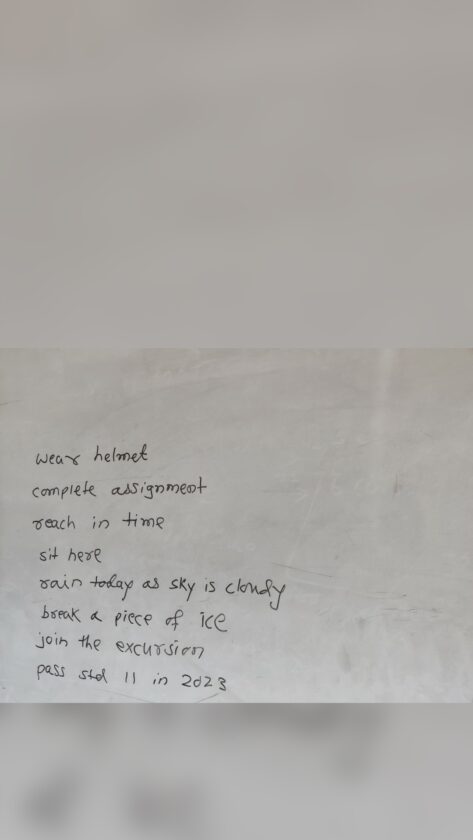 wear helmet
complete assignment
reach in time
sit here
rain today as sky is cloudy
break a piece of ice
join the excursion
pass std 11 in 2023